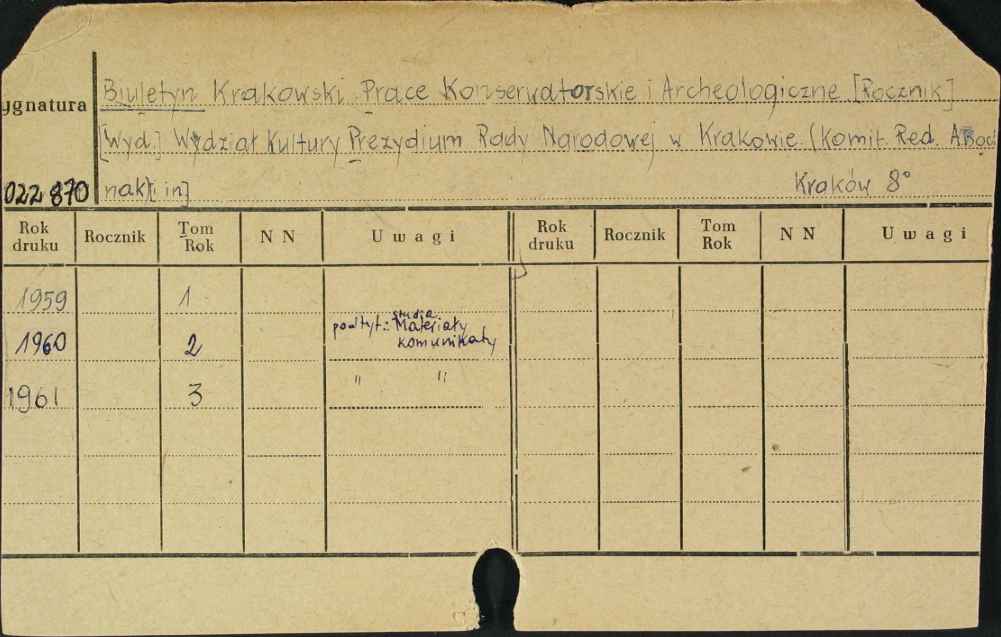 ygnatura
022 870
Biuletyn Krakowski. Prace Konserwatorskie i Archeologiczne [Rocznik]
[Wyd.] Wydział Kultury Prezydium Rady Narodowej w Krakowie (Komit. Red. A. Boch
nak i in]
Kraków 8°
Rok druku Rocznik Tom Rok N N Uwagi Rok druku Rocznik Tom Rok N N Uwagi
1959 1
1960 2 podtyt.: studia Materiały komunikaty
1961 3 " "